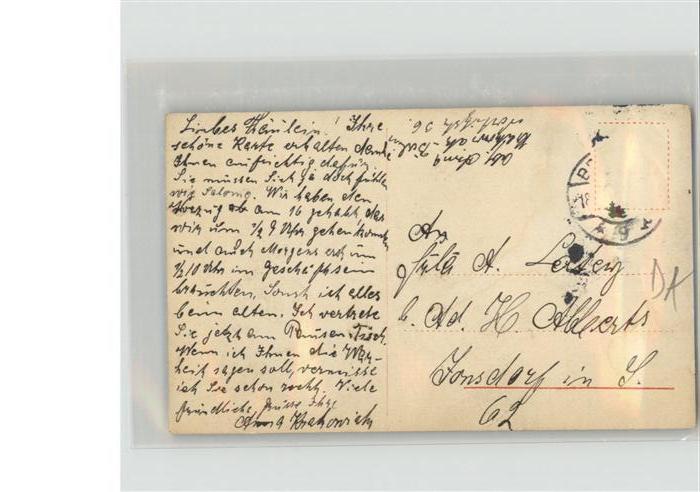 Liebes Fräulein! Ihre
schöne Karte erhalten danke
Ihnen aufrichtig dafür.
Sie müssen sich ja doch fühlen
wie Salome. Wir haben den
Vorzug am 16 gehabt, das
wir um 1/2 9 Uhr gehen konnten
und auch Morgens erst um
1/2 10 Uhr im Geschäft sein
brauchten. Sonst ist alles
beim alten. Ich vertrete
Sie jetzt am Pausen Tisch.
Wenn ich Ihnen die Wahr-
heit sagen soll, vermisse
ich Sie schon recht. Viele
freundliche Grüsse Ihre
Anna
An
Frl. A.
b. Ad. H. Alberts
Jonsdorf in S.
62